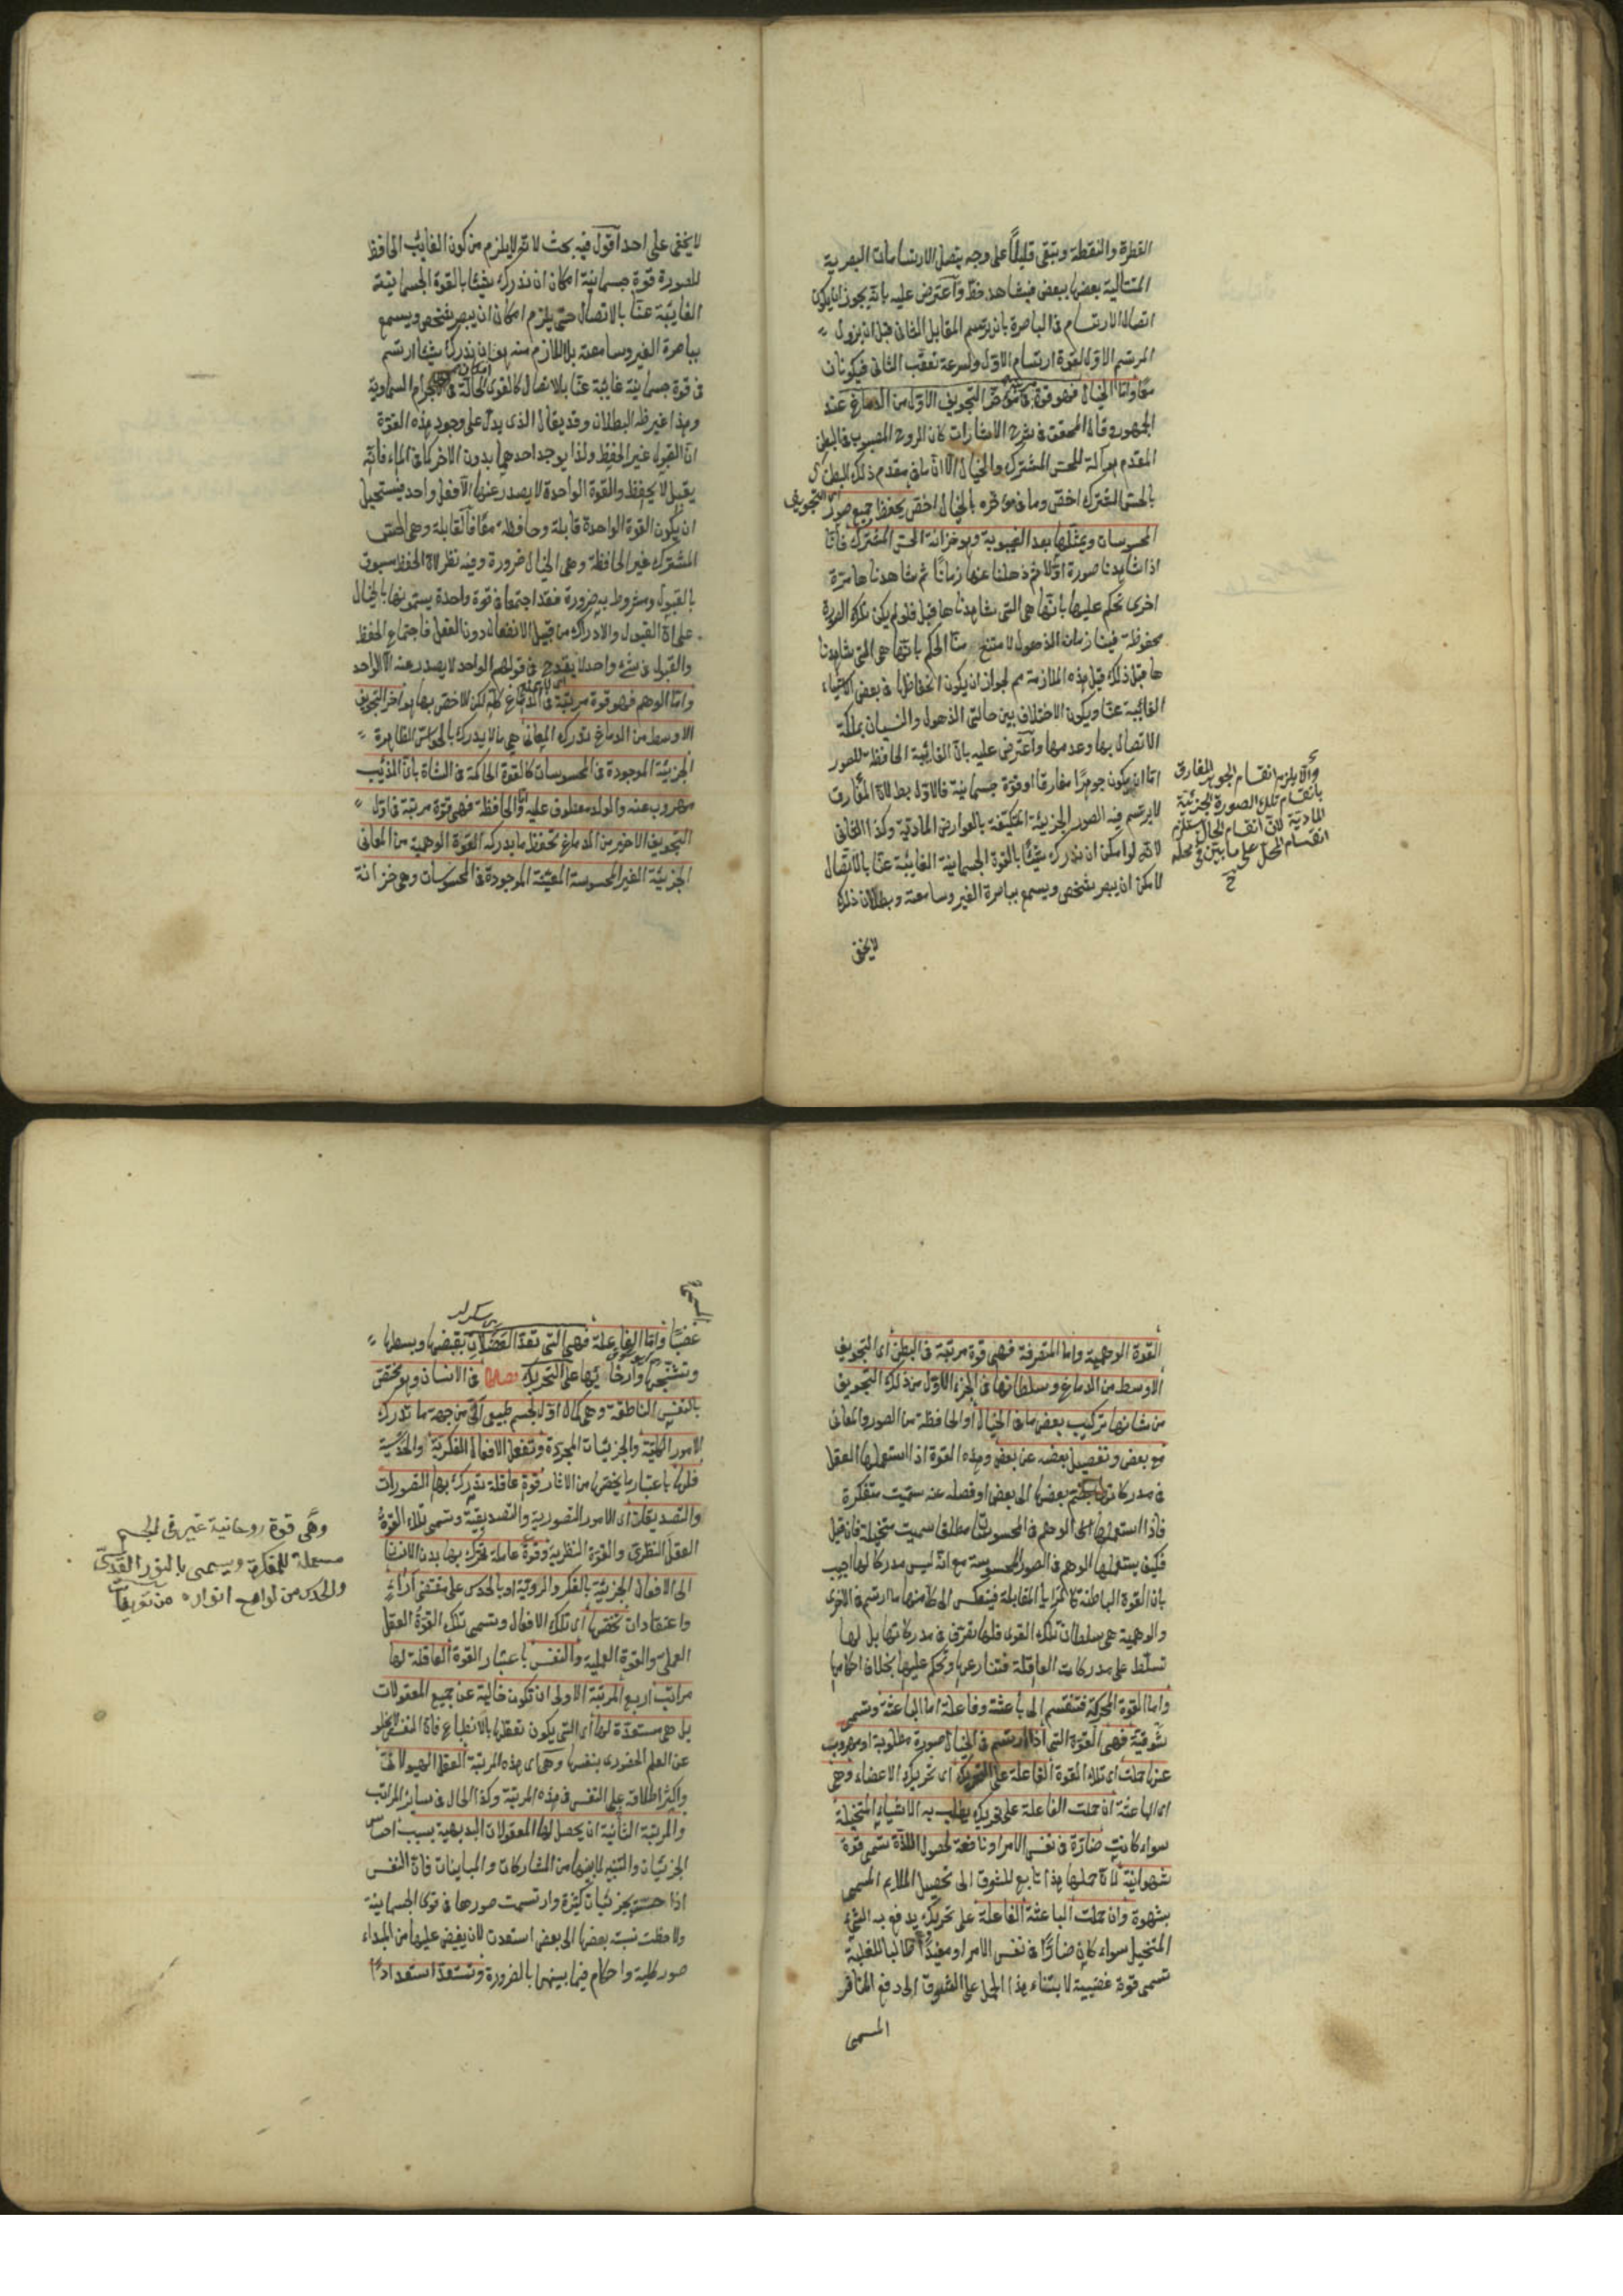 القطرة والنقطة وتبقى قليلاً على وجه يتصل الارتسامات البصرية
المتتالية بعضها ببعض فيشاهد خط وآعترض عليه بانه يجوز ان يكون
اتصال الارتسام فى الباصرة بان يرتسم المقابل الثانى قبل ان يزول
المرتسم الاول لقوة ارتسام الاول ولسرعة تعقب الثانى فيكونان
معا واما الخيال فهو قوة فى مؤخر التجويف الاول من الدماغ عند
الجمهور وقال المحقق فى شرح الاشارات كان الروح المصبوب فى البطن
المقدم هو آلة للحس المشترك والخيال الا ان ما فى مقدم ذلك البطن
بالحس المشترك اخص وما فى مؤخره بالخيال اخص يحفظ جميع صور
اى التجويف
المحسوسات ويمثلها بعد الغيبوبة وهو خزانة الحس المشترك فانا
اذا شاهدنا صورة اولا ثم ذهلنا عنها زمانا ثم شاهدنا ها مرة
اخرى نحكم عليها بانها هى التى شاهدنا ها قبل فلو لم يكن تلك الصورة
محفوظة فينا زمان الذهول لامتنع منا الحكم بانها هى التى شاهدنا
ها قبل ذلك قيل هذه الملازمة مم لجواز ان يكون انحفاظها فى بعض الاشياء
الغائبة عنا ويكون الاختلاف بين حالتى الذهول والنسيان بملكة
الاتصال بها وعدمها وآعترض عليه بان الغائبة الحافظة للصور
اما ان يكون جوهرا مفارقا او قوة جسمانية فالاول بط لان المفارق
لا يرتسم فيه الصور الجزيئة المكيفة بالعوارض المادية وكذا الثانى
لانه لو امكن ان ندرك شيئا بالقوة الجسمانية الغايبة عنا بالاتصال
لامكن ان يبصر شخص ويسمع بباصرة الغير وسامعته وبطلان ذلك
لا يخفى
والا يلزم انقسام الجوهر المفارق
بانقسام تلك الصورة الجزئية
المادية لان انقسام الحال يستلزم
انقسام المحل على ما بين فى محله
لا يخفى على احد اقول فيه بحث لانه لا يلزم من كون الغائب الحافظ
للصورة قوة جسمانية امكان ان ندرك شيئا بالقوة الجسمانية
الغايبة عنا بالاتصال حتى يلزم امكان ان يبصر شخص ويسمع
بباصرة الغير وسامعته بل اللازم منه هو ان ندرك شيئا ارتسم
فى قوة جسمانية غايبة عنا بالاتصال كالقوى الحالة فى الاجرام السماوية
وهذا غير ظ البطلان وقد يقال الذى يدل على وجود هذه القوة
ان القبول غير الحفظ ولذا يوجد احدهما بدون الاخر كما فى الماء فانه
يقبل لا يحفظ والقوة الواحدة لا يصدر عنها الا فعل واحد فيستحيل
ان يكون القوة الواحدة قابلة وحافظة معا فالقابلة وهى الحس
المشترك غير الحافظة وهى الخيال ضرورة وفيه نظر لان الحفظ مسبوق
بالقبول ومشروط به ضرورة فقد اجتمعا فى قوة واحدة يسمونها بالخيال
على ان القبول والادراك من قبيل الانفعال دون الفعل فاجتماع الحفظ
والقبول فى شىء واحد لا يقدح فى قولهم الواحد لا يصدر عنه الا الواحد
واما الوهم فهو قوة مرتبة فى الدماغ كله لكن الاخص بها هو آخر التجويف
الاوسط من الدماغ تدرك المعانى هى ما لا يدرك بالحواس الظاهرة
الجزيئة الموجودة فى المحسوسات كالقوة الحاكمة فى الشاة بان الذئب
مهروب عنه والولد معطوف عليه واما الحافظة فهى قوة مرتبة فى اول
التجويف الاخير من الدماغ تحفظ ما يدركه القوة الوهمية من المعانى
الجزيئة الغير المحسوسة المعينة الموجودة فى المحسوسات وهى خزانة
القوة الوهمية واما المتصرفة فهى قوة مرتبة فى البطن اى التجويف
الاوسط من الدماغ وسلطانها فى الجزء الاول من ذلك التجويف
من شانها تركيب بعض ما فى الخيال او الحافظة من الصور والمعانى
مع بعض وتفصيل بعضه عن بعض وهذه القوة اذا استعملها العقل
فى مدركاته بضم بعضها الى بعض او فصله عنه سميت متفكرة
فاذا استعملها الوهم فى المحسوسات مطلقا سميت متخيلة فان قيل
فكيف يستعملها الوهم فى الصور المحسوسة مع انه ليس مدركا لها اجيب
بان القوة الباطنة كالمرايا المقابلة فينعكس الى كل منها ما ارتسم فى الاخرى
والوهمية هى سلطان تلك القوى فلها تصرف فى مدركاتها بل لها
تسلط على مدركات العاقلة فتنازعها وتحكم عليها بخلاف احكامها
واما القوة المحركة فتنقسم الى باعثة وفاعلة اما الباعثة وتسمى
شوقية فهى القوة التى اذا ارتسم فى الخيال صورة مطلوبة او مهروب
عنها حملت اى تلك القوة الفاعلة على التحريك اى تحريك الاعضاء وهى
اى الباعثة ان حملت الفاعلة على تحريك يطلب به الاشياء المتخيلة
سواء كانت ضارة فى نفس الامر او نافعة لحصول اللذة تسمى قوة
شهوانية لان حملها هذا تابع للشوق الى تحصيل الملايم المسمى
بشهوة وان حملت الباعثة الفاعلة على تحريك يدفع به الشىء
المتخيل سواء كان ضارا فى نفس الامر او مفيدا طالبا للغلبة
تسمى قوة غضبية لابتناء هذا الحمل على الشوق الى دفع المنافر
المسمى
المسمى
غضبا واما الفاعلة فهى التى تعد العضلات بقبضها وبسطها
وتشنيجها وارخائها على التحريك فصل فى الانسان وهو مختص
بالنفس الناطقة وهى كمال اول لجسم طبيعى آلى من جهة ما تدرك
الامور الكلية والجزئيات المجردة وتفعل الافعال الفكرية والحدسية
فلها باعتبار ما يخصها من الاثار قوة عاقلة تدرك بها التصورات
والتصديقات اى الامور التصورية والتصديقية وتسمى تلك القوة
العقل النظرى والقوة النظرية وقوة عاملة تحرك بها بدن الانسان
الى الافعال الجزئية بالفكر والروية او بالحدس على مقتضى آراء
واعتقادات تخصها اى تلك الافعال وتسمى تلك القوة العقل
العملى والقوة العملية والنفس باعتبار القوة العاقلة لها
مراتب اربع المرتبة الاولى ان تكون خالية عن جميع المعقولات
بل هى مستعدة لها اى التى يكون تعقلها بالانطباع فان النفس لا يخلو
عن العلم الحضورى بنفسها وهى اى هذه المرتبة العقل الهيولانى
واكثر اطلاقه على النفس فى هذه المرتبة وكذا الحال فى ساير المراتب
والمرتبة الثانية ان يحصل لها المعقولات البديهية بسبب احساس
الجزئيات والتنبه لما بينها من المشاركات والمباينات فان النفس
اذا احست بجزئيات كثيرة وارتسمت صورها فى قوى الجسمانية
ولاحظت نسبة بعضها الى بعض استعدت لان يفيض عليها من المبداء
صور كلية واحكام فيما بينهما بالضرورة وتستعد استعدادا
وهى قوة روحانية غير فى الجسم
مستعملة للمفكرة ويسمى بالنور القدسى
والحدس من لوامع انواره من تعريفات